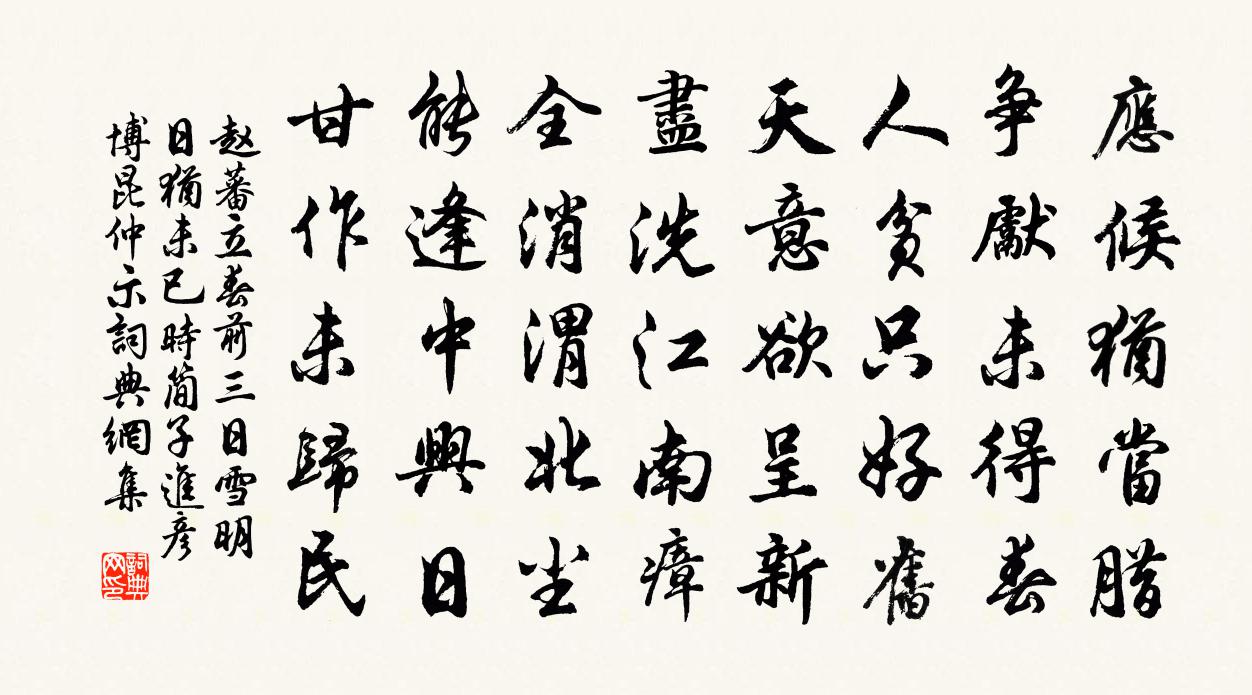 應候猶當臘
争獻未得春
人貧只好舊
天意欲呈新
盡洗江南瘴
全消渭北尘
能逢中興日
甘作未歸民
赵蕃立春前三日雪明
日猶未已時简子進彦
博昆仲示詞典網集
詞典
网印